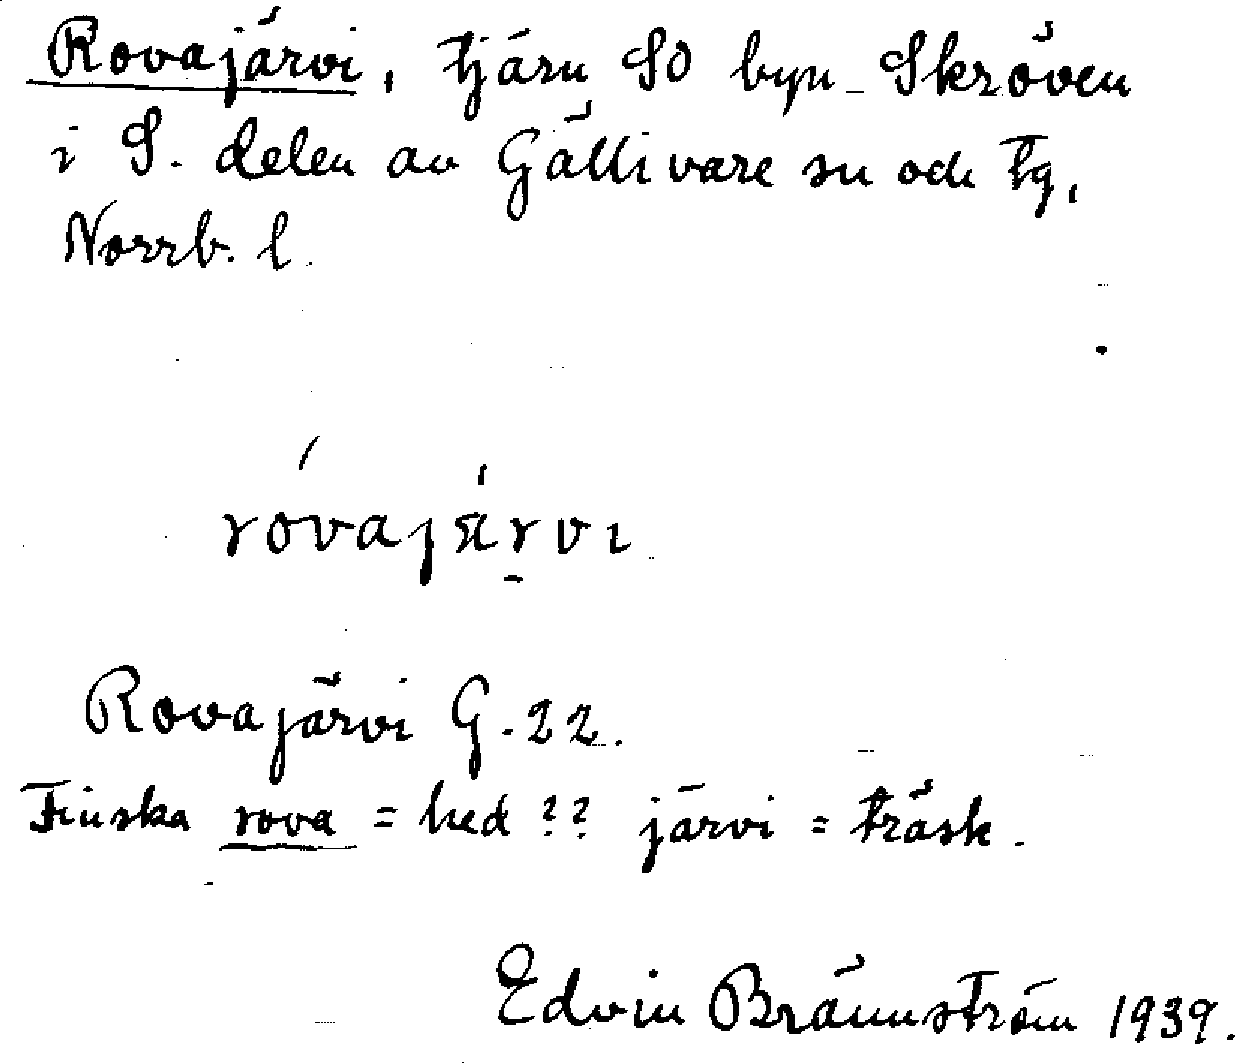 Rovajärvi, tjärn SO byn Skröven
i S. delen av Gällivare sn och tg,
Norrb. l.
róvajärvi
Rovajärvi G. 22.
Finska rova = hed ?? järvi = träsk.
Edvin Brännström 1939.